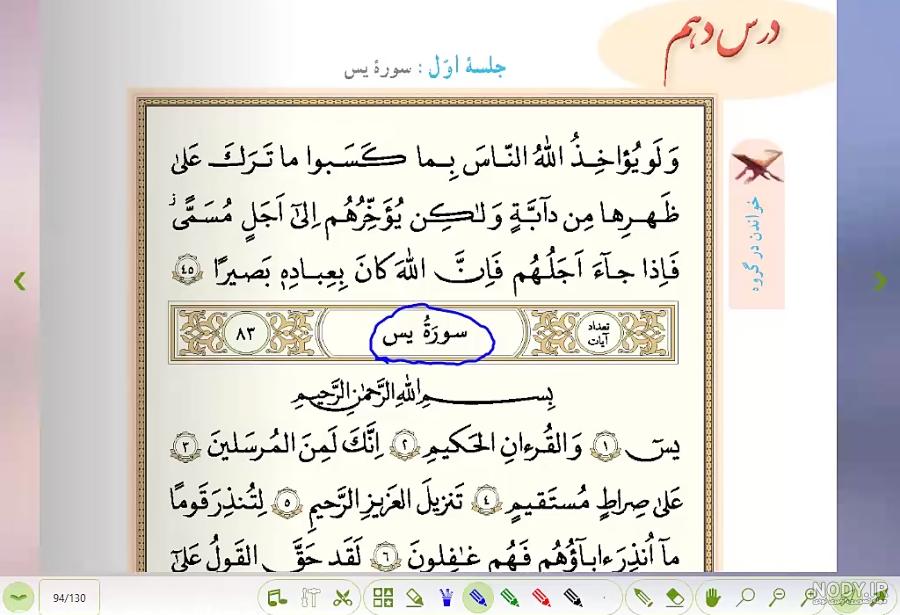 درس دهم
جلسهٔ اوّل : سورهٔ یس
خواندن در گروه
وَ لَو يُؤاخِذُ اللهُ النّاسَ بِما كَسَبوا ما تَرَكَ عَلىٰ
ظَهرِها مِن دآبَّةٍ وَ لٰكِن يُؤَخِّرُهُم اِلىٰٓ اَجَلٍ مُسَمًّىۖ ز
فَاِذا جآءَ اَجَلُهُم فَاِنَّ اللهَ كانَ بِعِبادِهٖ بَصيرًا ٤٥
تعداد آیات سورَةُ يس ٨٣
بِسمِ اللهِ الرَّحمٰنِ الرَّحيمِ
يسٓ ١ وَ القُرءانِ الحَكيمِ ٢ اِنَّكَ لَمِنَ المُرسَلينَ ٣
عَلىٰ صِراطٍ مُستَقيمٍ ٤ تَنزيلَ العَزيزِ الرَّحيمِ ٥ لِتُنذِرَ قَومًا
مآ اُنذِرَ ءابآؤُهُم فَهُم غٰفِلونَ ٦ لَقَد حَقَّ القَولُ عَلىٰٓ
94/130
NODY.IR